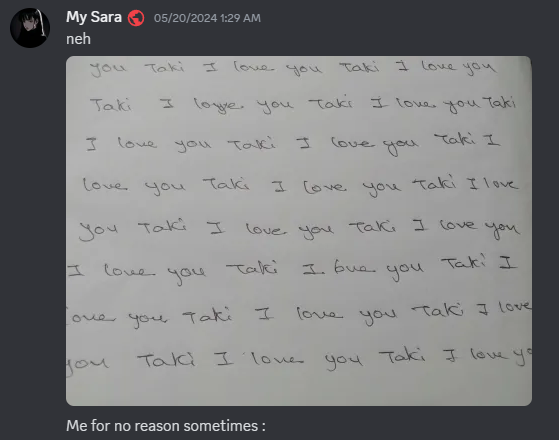 My Sara 05/20/2024 1:29 AM
neh
you Taki I love you Taki I love you
Taki I love you Taki I love you Taki
I love you Taki I love you Taki I
love you Taki I love you Taki I love
you Taki I love you Taki I love you
I love you Taki I love you Taki I
ove you Taki I love you Taki I love
you Taki I love you Taki I love yo
Me for no reason sometimes :